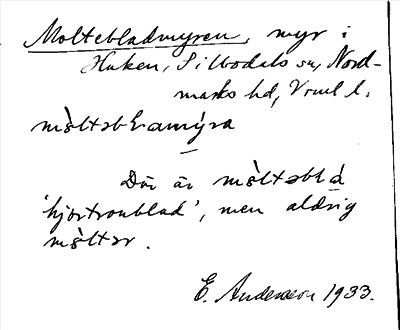 Moltebladmyren, myr i
Haken, Silbodals sn, Nord-
marks hd, Vrml l.
mòltəbɫamýra
Där är mòltəbɫá
'hjortronblad', men aldrig
mòltər.
E. Anderson 1933.